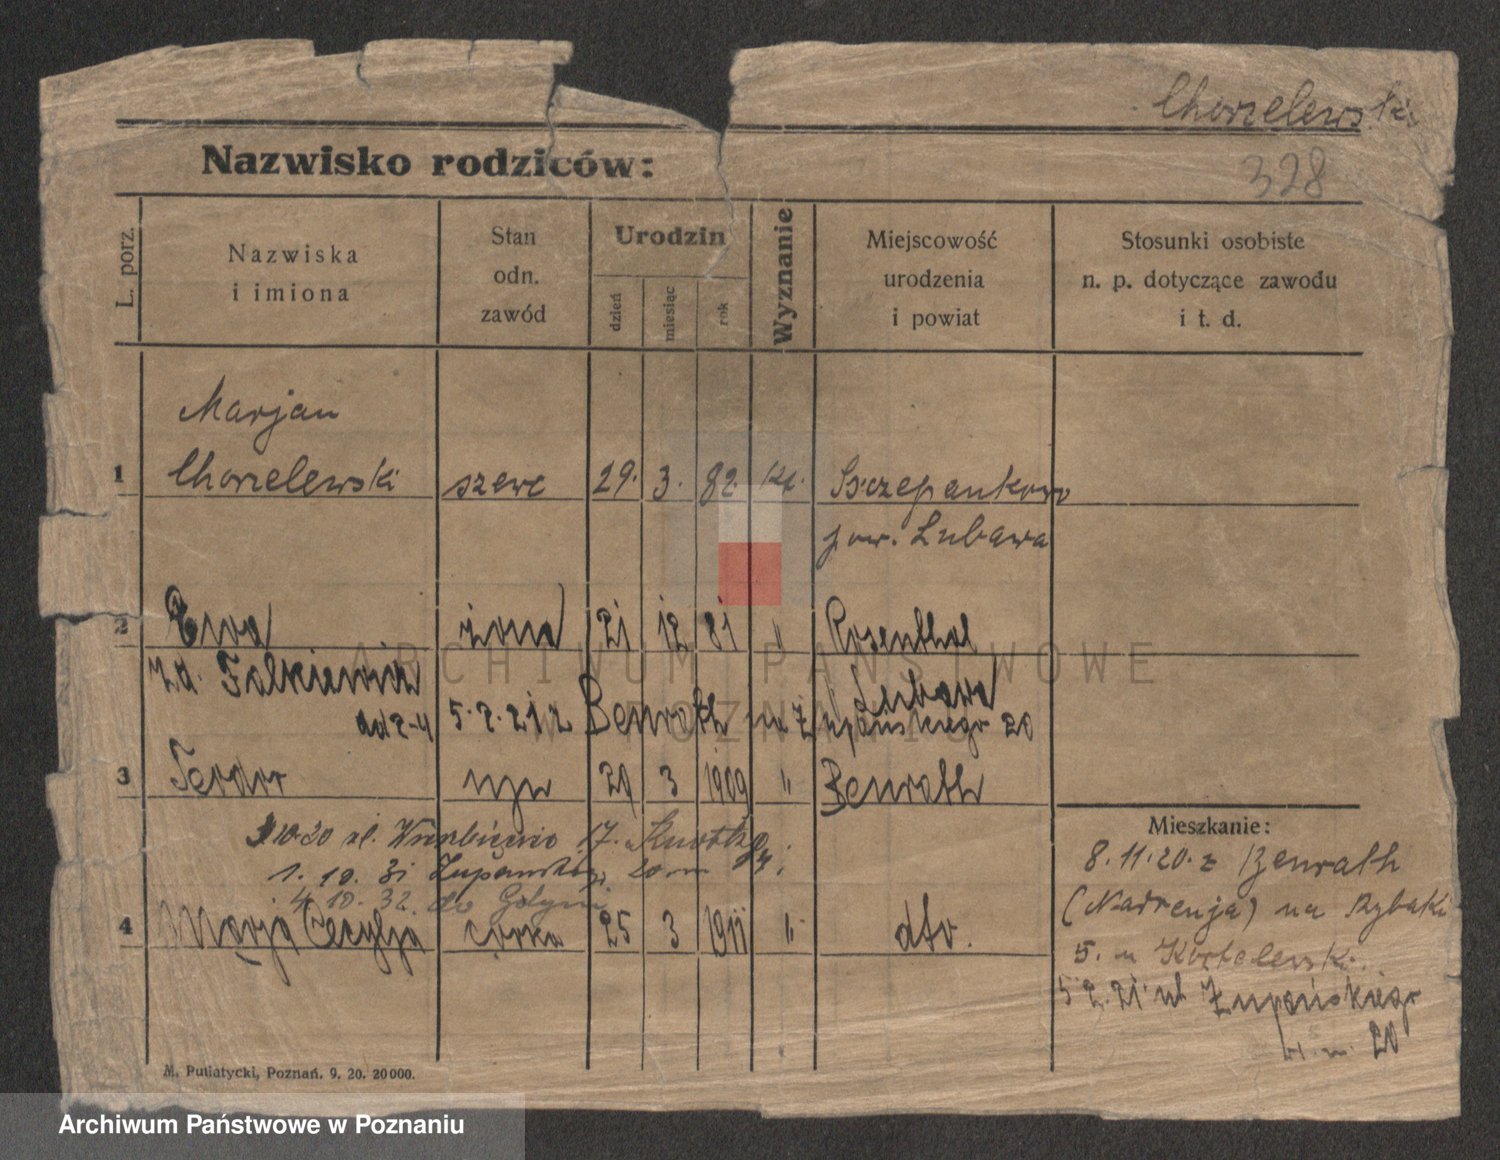 Chorzelewski
Nazwisko rodziców:
328
L. porz.
Nazwiska
i imiona
Stan
odn.
zawód
Urodzin
dzień
miesiąc
rok
Wyznanie
Miejscowość
urodzenia
i powiat
Stosunki osobiste
n. p. dotyczące zawodu
i t. d.
Marjan
1 Chorzelewski szewc 29. 3. 82. kt. Szczepankowo
pow. Lubawa
2 Ewa żona 21 12 81 " Rosenthal
z d. Falkiewicz Lubawa
ad 2-4 5.2.21 z Benrath na Żupańskiego 20
3 Teodor syn 20 3 1909 " Benrath
10.20 ul. 17.
1. 10. 31 Żupańskiego 20
4 10. 32. do
4 Marja Cecylja córka 25 3 1911 " dto.
Mieszkanie:
8.11.20. z Benrath
(Nadrenja) na Rybaki
5. u
5.2.21 ul. Żupańskiego
20
M. Putiatycki, Poznań. 9. 20. 20000.
ARCHIWUM PAŃSTWOWE
W POZNANIU
Archiwum Państwowe w Poznaniu